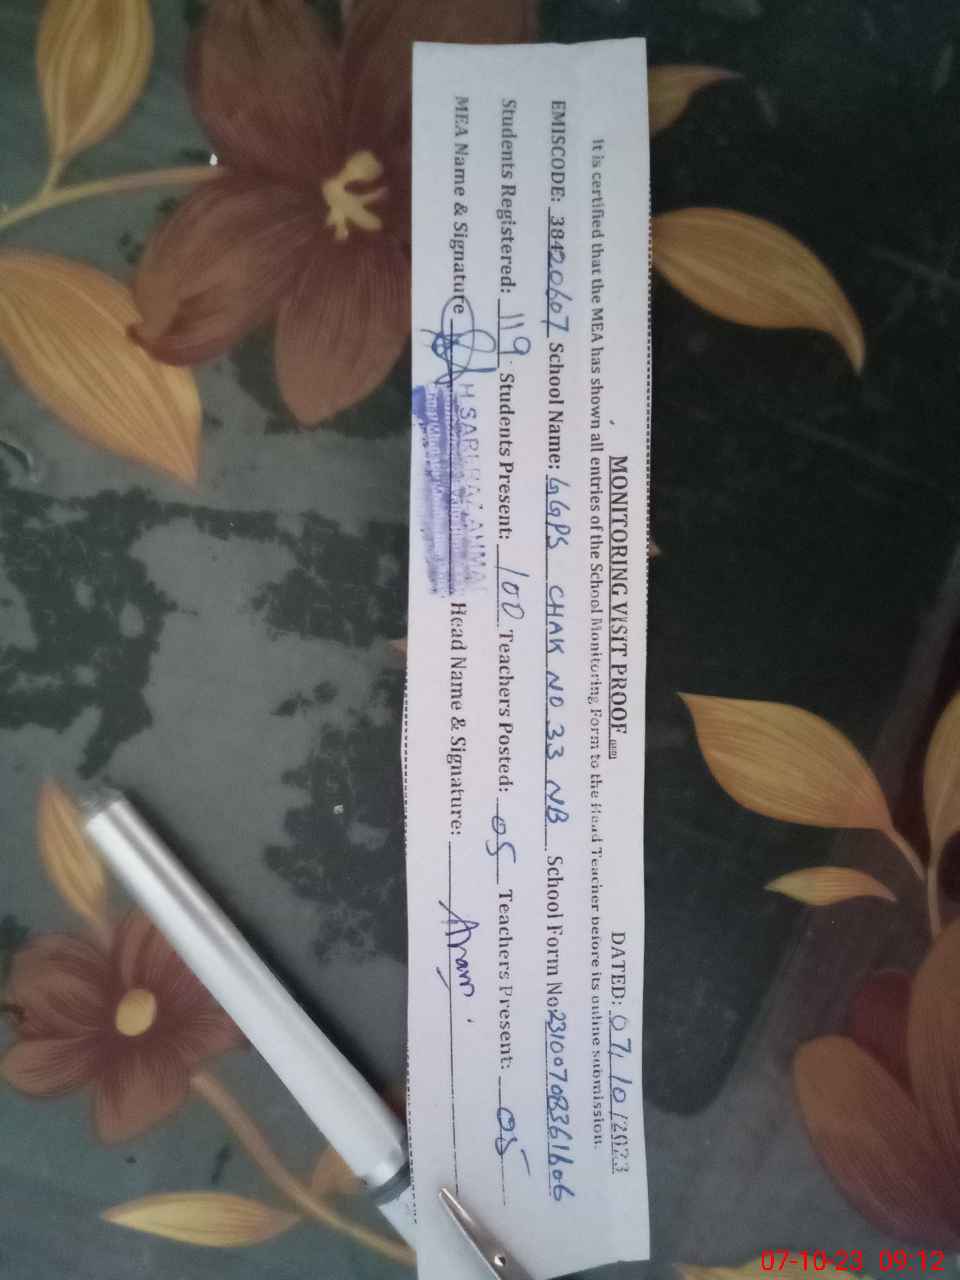 MONITORING VISIT PROOF DATED: 07/10/2023
It is certified that the MEA has shown all entries of the School Monitoring Form to the Head Teacher before its online submission.
EMISCODE: 38420607 School Name: GGPS CHAK NO 33 NB School Form No 23100708361606
Students Registered: 119. Students Present: 100 Teachers Posted: 05 Teachers Present: 05
MEA Name & Signature Head Name & Signature:
07-10-23 09:12